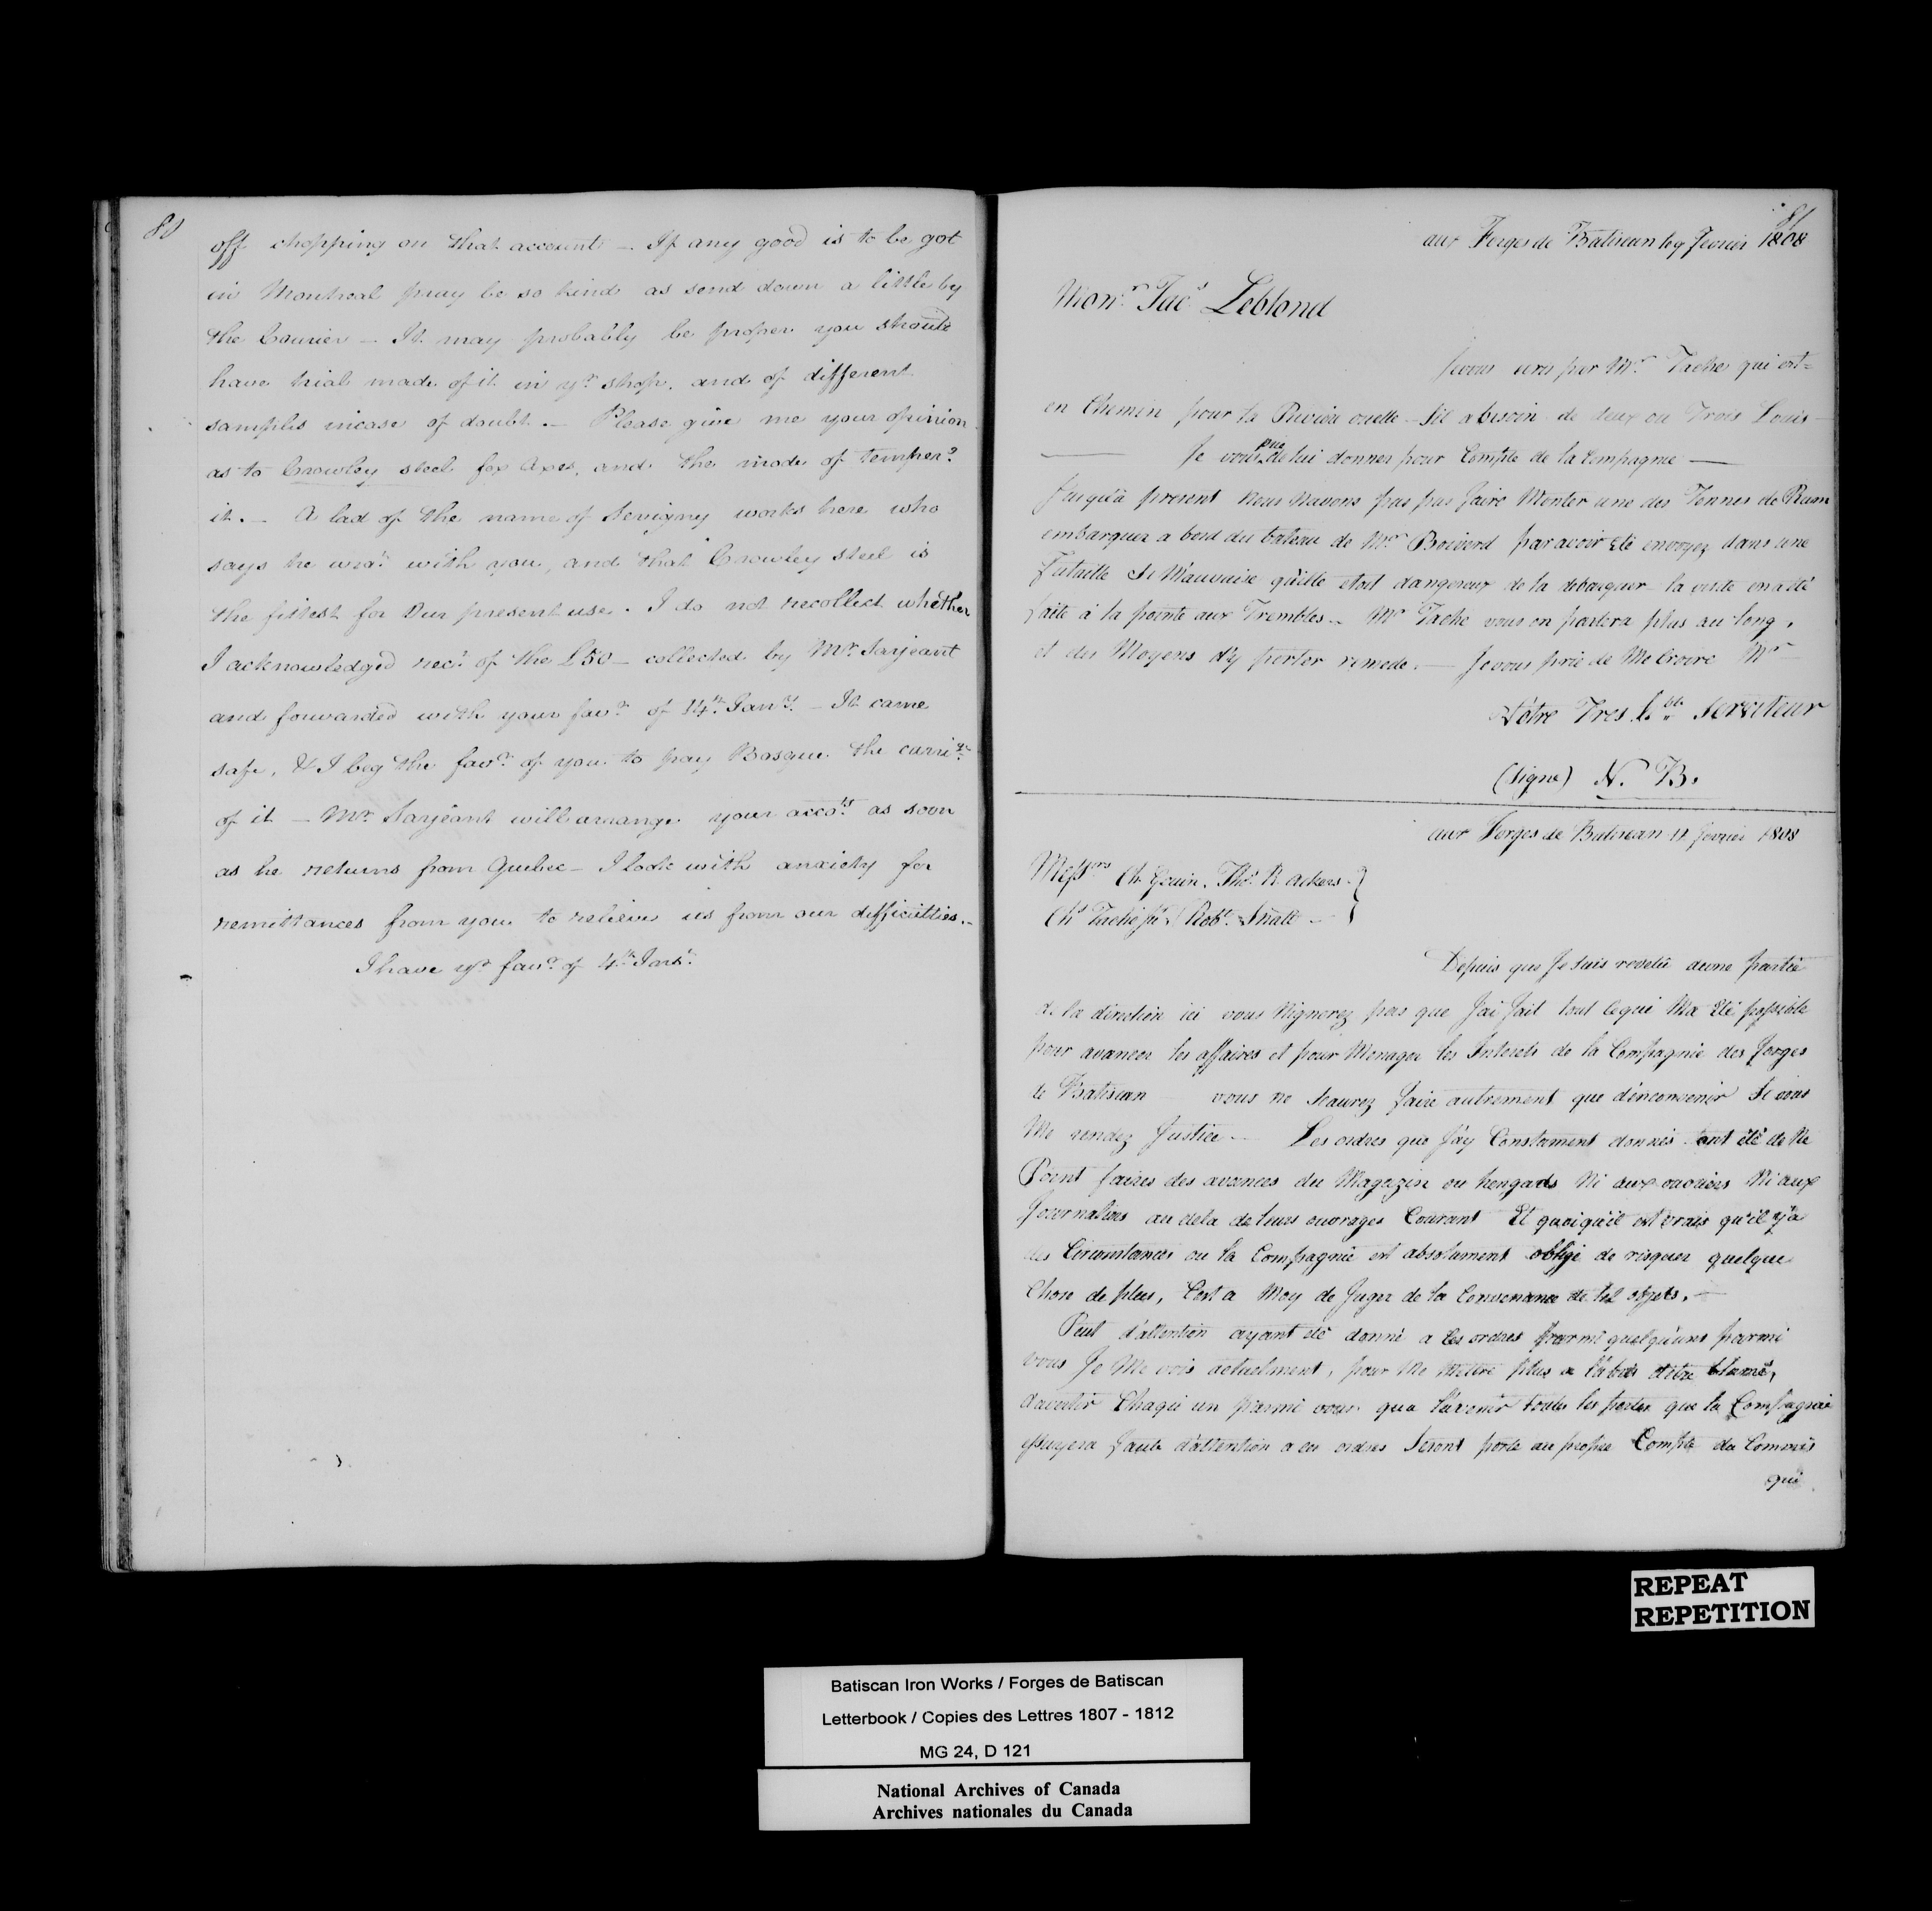 80
off chopping on that account - If any good is to be got
in Montreal pray be so kind as send down a little by
the Courier - It may probably be proper you should
have trial made of it in yr shop, and of different
samples incase of doubt. - Please give me your opinion
as to Crowley steel for Axes, and the mode of temperg
it. - A lad of the name of Sevigny works here who
says he wrot with you, and that Crowley steel is
the fittest for Our present use. I do not recollect whether
I acknowledged rect of the £50 - collected by Mr. Sarjeant
and forwarded with your favr of 14th Jany. - It came
safe, & I beg the favr of you to pay Basque the carrige
of it - Mr. Sarjeant will arrange your accots as soon
as he returns from Quebec - I look with anxiety for
remittances from you to relieve us from our difficulties. -
I have yr favr of 4th Inst.
81
aux Forges de Batiscan le 9 fevrier 1808
Monsr Jacs Leblond
Je vous ecris par Mr Tache qui est=
en Chemin pour la Riviere ouelle - S'il a besoin de deux ou Trois Louis -
Je vous prie de lui donner pour Compte de la Compagnie -
Jusqu'à present Nous Navons pas pas faire Monter une des Tonnes de Rum
embarquer a bord du bateau de Mr Boiverd par avoir été envoyez dans une
Futaille Si Mauvaise qu'ille etoit dangereux de la debarquer - la visite en a été
faite à la pointe aux Trembles - Mr Tache vous en parlera plus au long,
et des Moyens d'y porter remede. - Je vous prie de Me Croire Mr -
Vôtre Tres h.ble Serviteur
(Signe) N. B.
aux Forges de Batiscan 11 fevrier 1808
Messrs Ch. Gouin. Thos R. Ackers
Chs Taché Robt Snatt -
Depuis que Je Suis revetû dune partie
de la direction ici vous Nignorez pas que J'ai fait tout cequi Ma Eté possible
pour avancer les affaires et pour Menager les Interets de la Compagnie des forges
de Batiscan vous ne Scaurez faire autrement que d'enconvenir Si vous
Me rendez Justice - Les ordres que J'ay Constament donnés ont été de Ne
Point faires des avances du Magazin ou hengards Ni aux ouvriers Ni aux
Journaliers au dela de leurs ouvrages Courant Et quoiqu'il est vrais qu'il y'a
des Circonstances ou la Compagnie est absolument obligé de risquer quelque
Chose de plus, C'est a Moy de Juger de la Convenance de tel objets. -
Peut d'attention ayant été donné a Ces ordres parmi quelqu'uns parmi
vous Je Me vois actuelment, pour Me Mettre plus a l'abri d'être blamé,
d'avertir Chaque un parmi vous qua l'avenir toutes les pertes que la Compagnie
essuyera faute d'attention a ces ordres Seront porté au propre Compte du Commis
qui
REPEAT
REPETITION
Batiscan Iron Works / Forges de Batiscan
Letterbook / Copies des Lettres 1807 - 1812
MG 24, D 121
National Archives of Canada
Archives nationales du Canada